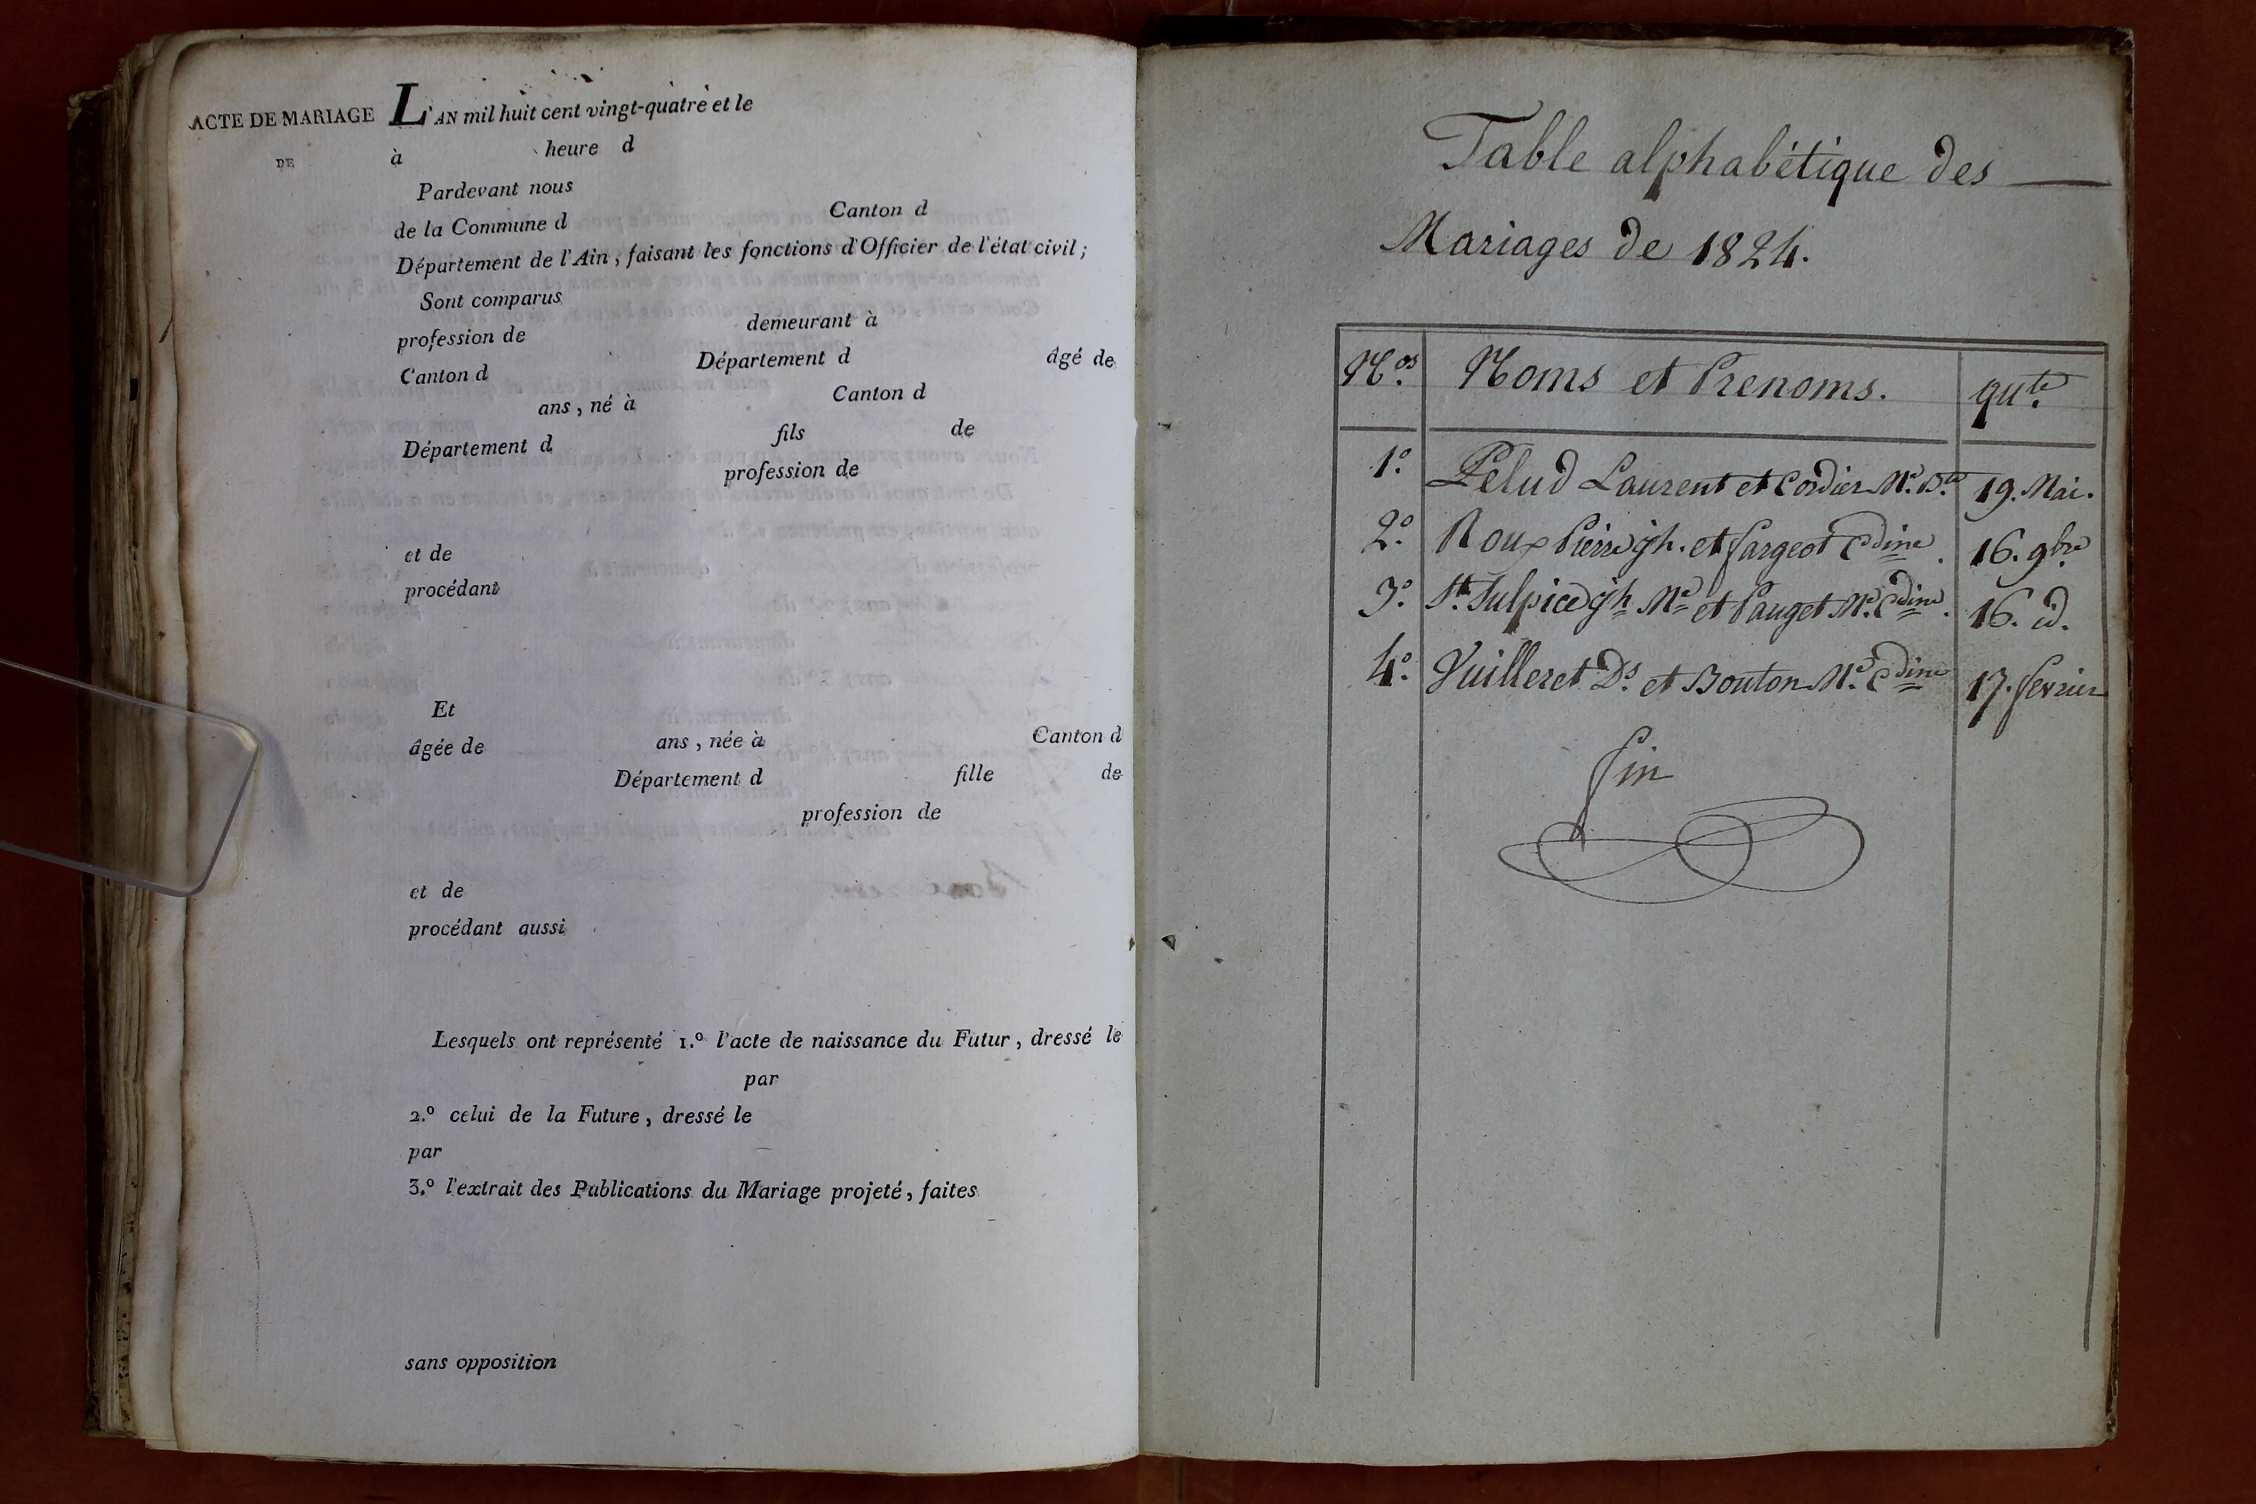 ACTE DE MARIAGE L'AN mil huit cent vingt-quatre et le
DE à heure d
Pardevant nous
de la Commune d Canton d
Département de l'Ain, faisant les fonctions d'Officier de l'état civil;
Sont comparus
profession de demeurant à
Canton d Département d âgé de
ans, né à Canton d
Département d fils de
profession de
et de
procédant
Et
âgée de ans, née à Canton d
Département d fille de
profession de
et de
procédant aussi
Lesquels ont représenté 1.º l'acte de naissance du Futur, dressé le
par
2.º celui de la Future, dressé le
par
3.º l'extrait des Publications du Mariage projeté, faites
sans opposition
Table alphabétique des
Mariages de 1824.
Nos. Noms et Prenoms. qute.
1º. Pelud Laurent et Cordier Mie. Bte. 19. Mai.
2º. Roux Pierre jh. et fargeot Cdine. 16. 9bre.
3º. St. Sulpice jh Me et Pauget Me. Cdine. 16. id.
4º. Vuilleret Ds. et Bouton Me. Cdine 17. fevrier
fin